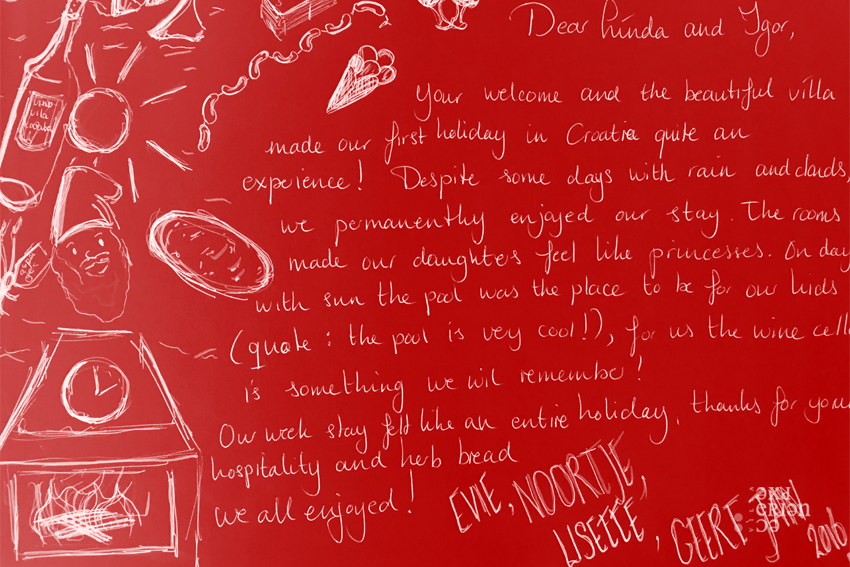 Dear Linda and Igor,
Your welcome and the beautiful villa
made our first holiday in Croatia quite an
experience! Despite some days with rain and clouds,
we permanenthy enjoyed our stay. The rooms
made our daughters feel like princesses. On day
with sun the pool was the place to be for our kids
(quote : the pool is very cool!), for us the wine cell
is something we wil remember!
Our week stay felt like an entire holiday, thanks for your
hospitality and herb bread
we all enjoyed!
EVIE, NOORTJE,
LISETTE, GEERT JAN 2016